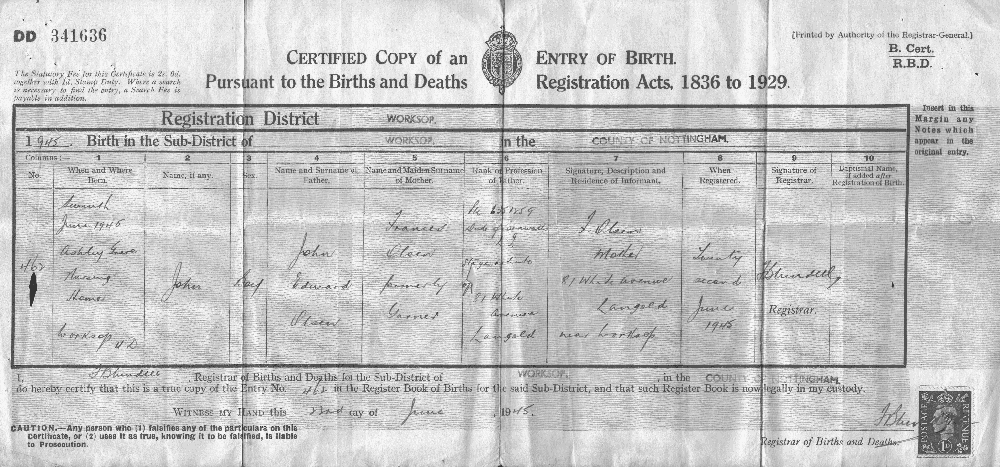 DD 341636
[Printed by Authority of the Registrar-General.]
B. Cert.
R.B.D.
CERTIFIED COPY of an ENTRY OF BIRTH.
Pursuant to the Births and Deaths Registration Acts, 1836 to 1929.
The Statutory Fee for this Certificate is 2s. 6d.
together with 1d. Stamp Duty. Where a search
is necessary to find the entry, a Search Fee is
payable in addition.
Insert in this
Margin any
Notes which
appear in the
original entry.
Registration District WORKSOP.
1945. Birth in the Sub-District of WORKSOP. in the COUNTY OF NOTTINGHAM.
Columns:— 1 2 3 4 5 6 7 8 9 10
No. When and Where Born. Name, if any. Sex. Name and Surname of Father. Name and Maiden Surname of Mother. Rank or Profession of Father. Signature, Description and Residence of Informant. When Registered. Signature of Registrar. Baptismal Name, if added after Registration of Birth.
June 1945
Ashley Grove
Nursing
Home
Worksop
John
Boy
John
Edward
Olsen
Frances
Olsen
formerly
Garner
81 White
Avenue
Langold
F. Olsen
Mother
81 White Avenue
Langold
near Worksop
Twenty
second
June
1945
Blundell
Registrar.
I, Blundell, Registrar of Births and Deaths for the Sub-District of WORKSOP. , in the COUNTY OF NOTTINGHAM,
do hereby certify that this is a true copy of the Entry No. in the Register Book of Births for the said Sub-District, and that such Register Book is now legally in my custody.
WITNESS MY HAND this 22nd day of June , 1945.
CAUTION.—Any person who (1) falsifies any of the particulars on this
certificate, or (2) uses it as true, knowing it to be falsified, is liable
to Prosecution.
Registrar of Births and Deaths.
POSTAGE
REVENUE